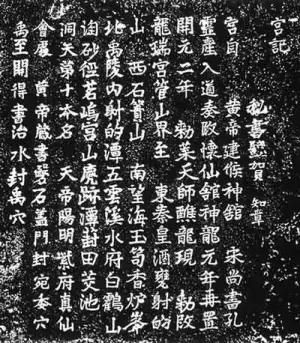 宮記
秘書監賀 知章
宮自 黃帝建候神舘 宋尚書孔
靈產入道奏改懷仙舘神龍元年再置
開元二年 勑葉天師醮龍現 勑改
龍瑞宮管山界至 東秦皇酒甕射的
山 西石簣山 南望海玉笥香炉峯
北禹陵內射的潭五雲溪水府白鶴山
淘砂徑茗塢宮山鹿跡潭葑田茭池
洞天第十本名 天帝陽明紫府真仙
會處 黃帝藏書磐石盖門封宛委穴
禹至開得書治水封禹穴